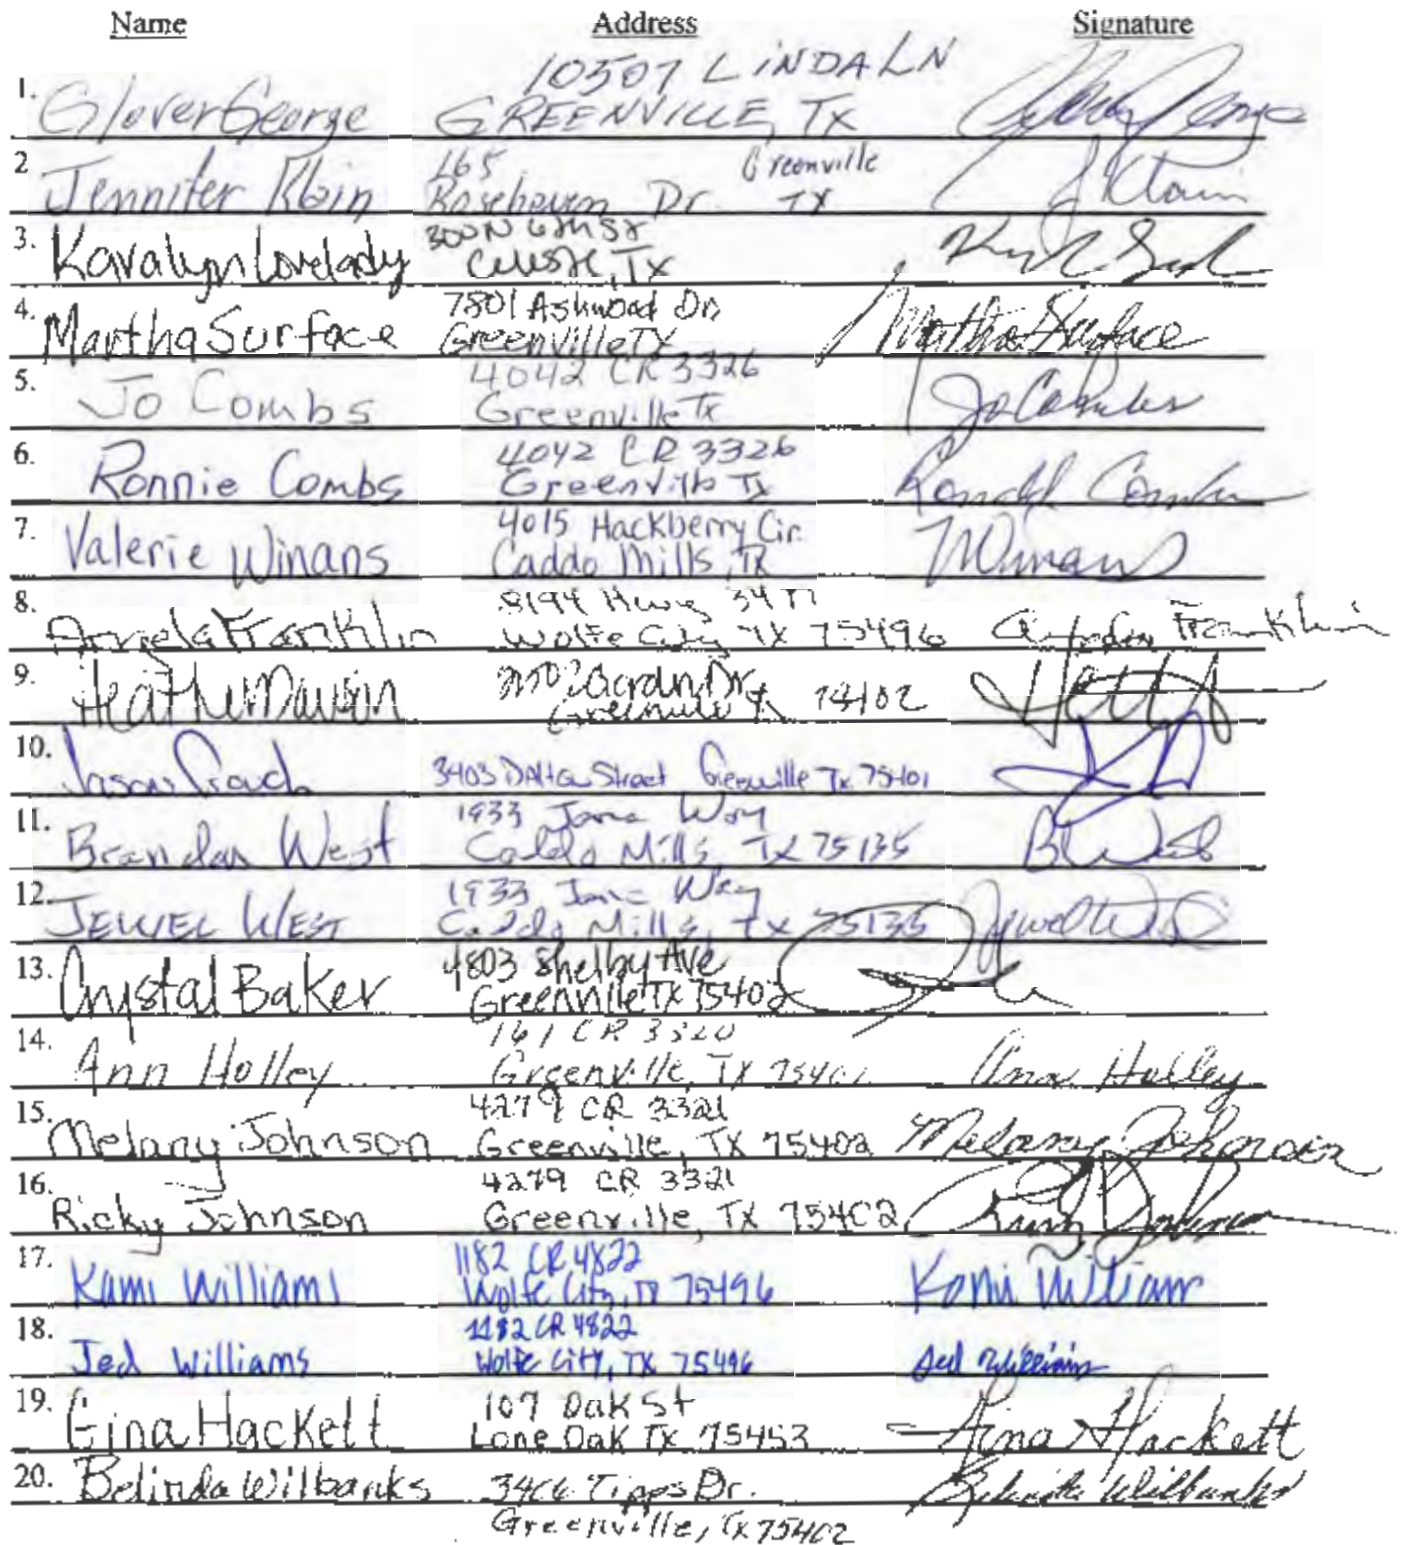 Name Address Signature
10507 LINDA LN
1. Glover George GREENVILLE, TX
2 Jennifer Klein 165 Greenville
Rosehaven Dr. TX
3. Kavalyn Lovelady 300 N 6th St
Celeste, TX
4. Martha Surface 7801 Ashwood Dr.
Greenville TX Martha Surface
5. Jo Combs 4042 CR 3326
Greenville Tx Jo Combs
6. Ronnie Combs 4042 CR 3326
Greenville Tx Ronald Combs
7. Valerie Winans 4015 Hackberry Cir.
Caddo Mills, TX VWinans
8. Angela Franklin 8194 Hwy 34
Wolfe City TX 75496 Angela Franklin
9. Dr.
Greenville TX
10. Jason Crouch 3403 Dalton Street Greenville Tx 75401
11. Brandon West 1933 Jana Way
Caddo Mills, TX 75135 B West
12. JEWEL WEST 1933 Jana Way
Caddo Mills, TX 75135 Jewel West
13. Crystal Baker 4803 Shelby Ave
Greenville TX 75402
14. Ann Holley 161 CR 3320
Greenville, TX Ann Holley
15. Melany Johnson 4279 CR 3321
Greenville, TX 75402 Melany Johnson
16. Ricky Johnson 4279 CR 3321
Greenville, TX 75402
17. Kami Williams 1182 CR 4822
Wolfe City, TX 75496 Kami William
18. Jed Williams 1182 CR 4822
Wolfe City, TX 75496 Jed Williams
19. Gina Hackett 107 Oak St
Lone Oak TX 75453 Gina Hackett
20. Belinda Wilbanks 3406 Tipps Dr. Belinda Wilbanks
Greenville, Tx 75402